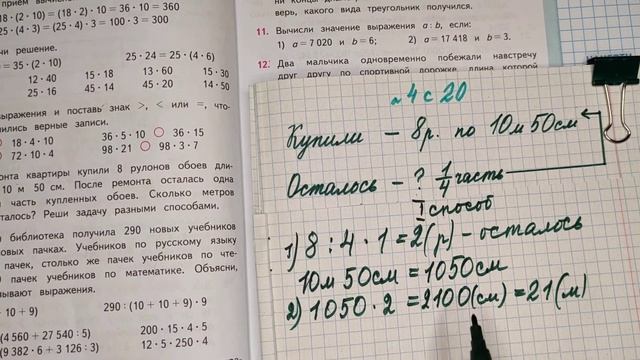 приём вычисл
18 · (2 · 10) = (18 · 2) · 10 = 36 · 10 = 360
25 · (4 · 3) = (25 · 4) · 3 = 100 · 3 = 300
чи решение.
= 35 · (2 · 10)
25 · 24 = 25 · (4 · 6)
12 · 40 15 · 18 13 · 60 15 · 30
25 · 16 45 · 14 45 · 20 14 · 50
выражения и поставь знак >, < или =, что-
чились верные записи.
18 · 4 · 10 36 · 5 · 10 36 · 15
72 · 10 · 4 98 · 21 98 · 3 · 7
онта квартиры купили 8 рулонов обоев дли-
10 м 50 см. После ремонта осталась одна
я часть купленных обоев. Сколько метров
сталось? Реши задачу разными способами.
библиотека получила 290 новых учебников
овых пачках. Учебников по русскому языку
пачек, столько же пачек учебников по чте-
0 пачек учебников по математике. Объясни,
зывают выражения.
+ 10 + 9) 290 : (10 + 10 + 9) · 9
(4 560 + 27 540 : 5) 200 · 15 · 4 · 5
(9 382 · 6 + 3 126 : 3) 12 · 5 · 250 · 4
верь, какого вида треугольник получился.
11. Вычисли значение выражения a : b, если:
1) a = 7 020 и b = 6; 2) a = 17 418 и b = 3.
12. Два мальчика одновременно побежали навстречу
друг другу по спортивной дорожке, длина которой
№ 4 с 20
Купили – 8р. по 10м 50см
Осталось – ? 1/4 часть
I способ
1) 8 : 4 · 1 = 2(р) – осталось
10м 50см = 1050см
2) 1050 · 2 = 2100(см) = 21(м)